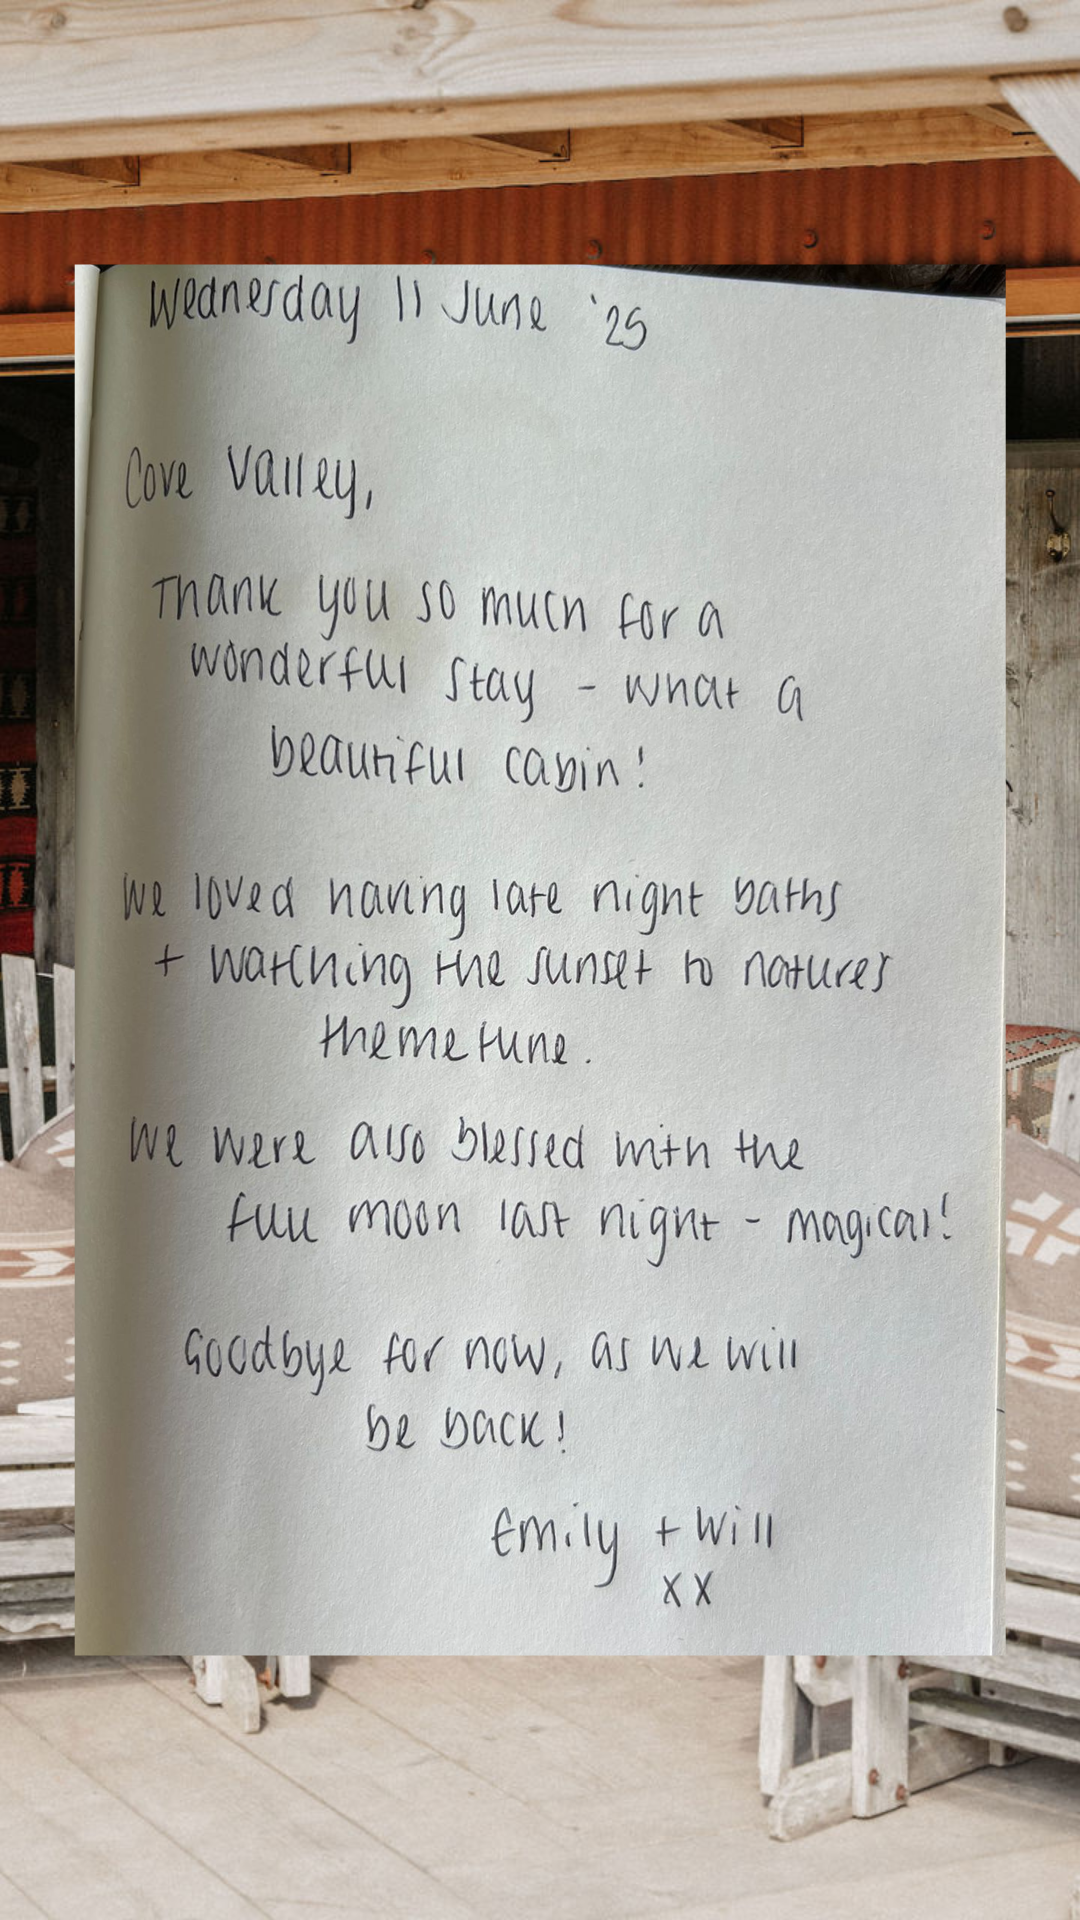 Wednesday 11 June '25
Cove Valley,
Thank you so much for a
wonderful stay - what a
beautiful cabin!
We loved having late night baths
+ watching the sunset to natures
theme tune.
We were also blessed with the
full moon last night - magical!
Goodbye for now, as we will
be back!
Emily + Will
xx